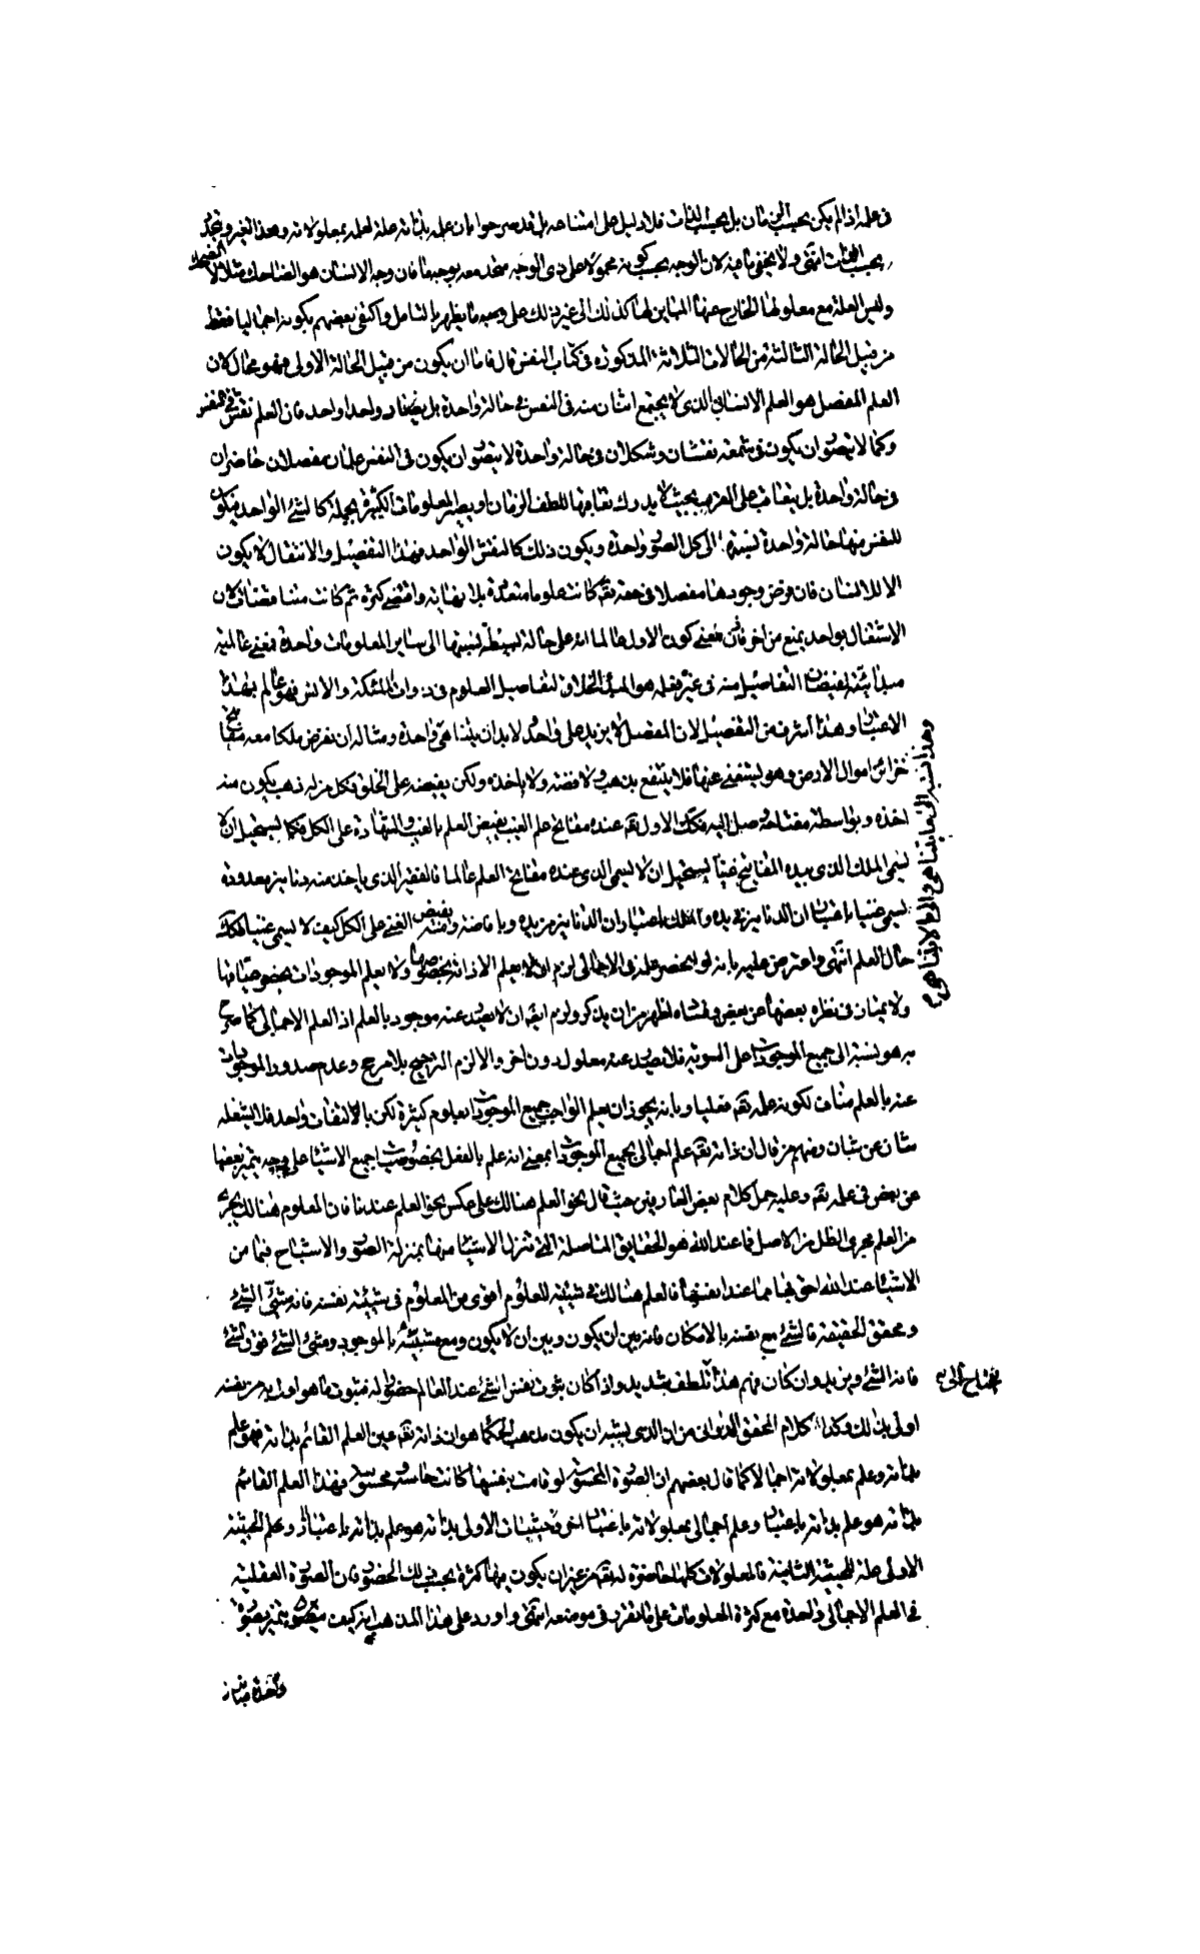 فى علمه اذا لم يكن بحسب الزمان بل بحسب الذات فلا دليل على امتناعه بل قد صرحوا بان علمه بذاته علة لعلمه بمعلولاته وهذا التغير وتجدد
بحسب الذات انتهى ولا يخفى ما فيه لان الوجه بحسب كونه محمولا على ذى الوجه متحد معه بوجه ما فان وجه الانسان هو الضاحك مثلا لا الضحك
وليس العلة مع معلولها الخارج عنها المباين لها كذلك الى غير ذلك على وجه ما يظهر بالتامل واكتفى بعضهم بكونه اجماليا فقط
من قبيل الحالة الثالثة من الحالات الثلاثة المذكورة فى كتاب النفس قال فاما ان يكون من قبيل الحالة الاولى فهو محال لان
العلم المفصل هو العلم الانسانى الذى لا يجتمع اثنان منه فى النفس فى حالة واحدة بل يتعاقب واحدا واحدا فان العلم نقش فى النفس
وكما لا يتصور ان يكون فى شمعة نقشان وشكلان فى حالة واحدة لا يتصور ان يكون فى النفس علمان مفصلان حاضران
فى حالة واحدة بل يتعاقب على القرب بحيث لا يدرك تعاقبها للطف الزمان او يصير المعلومات الكثيرة بجملة كالشئ الواحد فيكون
للنفس منها حالة واحدة نسبتها الى كل الصور واحدة ويكون ذلك كالنقش الواحد فهذا التفصيل والانتقال لا يكون
الا للانسان فان فرض وجودها مفصلا فى حقه تعم كانت علوما متعددة بلا نهاية واقتضى كثرة ثم كانت متناقضات لان
الاشتغال بواحد يمنع من اخر فاذن معنى كون الاول عالما انه على حالة بسيطة نسبتها الى ساير المعلومات واحدة فمعنى عالميته
مبدائيته لفيضان التفاصيل منه فى غيره فعلمه هو المبدا الخلاق لتفاصيل العلوم فى ذوات الملئكة والانس فهو عالم بهذا
الاعتبار وهذا اشرف من التفصيل لان المفصل لا يزيد على واحد ولا بد ان يتناهى واحدة ومثاله ان نفرض ملكا معه مفاتيح
خزائن اموال الارض وهو يستغنى عنها فلا ينتفع بذهب ولا فضة ولا ياخذه ولكن يفيضه على الخلق فكل من له ذهب يكون منه
اخذه وبواسطة مفتاحه وصل اليه فكك الاول تعم عنده مفاتيح علم الغيب يفيض العلم بالغيب والشهادة على الكل فكما يستحيل ان لا
يسمى الملك الذى بيده المفاتيح غنيا يستحيل ان لا يسمى الذى عنده مفاتيح العلم عالما فالفقير الذى ياخذ منه دنانيز معدودة
يسمى غنيا باعتبار ان الدنانير فى يده والملك باعتبار ان الدنانير من يده وبافاضته ومنه يفيض الغنى على الكل كيف لا يسمى غنيا فكك
حال العلم انتهى واعترض عليه بانه لو انحصر علمه فى الاجمالى لزم ان لا يعلم الا ذاته بخصوصها ولا يعلم الموجودات بخصوصياتها
ولا يمتاز فى نظره بعضها عن بعض وفساده اظهر من ان يذكر ولزم ايضا ان لا يصدر عنه موجود بالعلم اذ العلم الاجمالى كما صرح
به هو نسبة الى جميع الموجودات على السوية فلا يصدر عنه معلول دون اخر والا لزم الترجيح بلا مرجح وعدم صدور الموجودات
عنه بالعلم مناف لكونه علمه تعم فعليا وبانه يجوز ان يعلم الواجب جميع الموجودات بعلوم كثيرة لكن بالالتفات واحد فلا يشغله
شان عن شان ومنهم من قال ان ذاته تعم علم اجمالى بجميع الموجودات بمعنى انه علم بالفعل بخصوصيات جميع الاشياء على وجه يتميز بعضها
عن بعض فى علمه تعم وعليه حمل كلام بعض العارفين حيث قال نحو العلم هنالك على عكس نحو العلم عندنا فان المعلوم هنالك يجرى
من العلم مجرى الظل من الاصل فما عند الله هو الحقايق المتاصلة التى تنزل الاشياء منها بمنزلة الصور والاشباح فما من
الاشياء عند الله احق بها مما عند انفسها فالعلم هنالك فى شيئية المعلوم اقوى من المعلوم فى شيئية نفسه فانه مشيئ الشئ
ومحقق الحقيقة فالشئ مع نفسه بالامكان فانه بين ان يكون وبين ان لا يكون ومع مشيئه بالوجوب ومشيئ الشئ فوق الشئ
فانه الشئ ويزيد وان كان فهم هذا تلطف شديد واذا كان ثبوت نفس الشئ عند العالم حضورا له فثبوت ما هو اولى به من نفسه
اولى بذلك وكذا كلام المحقق الدوانى من ان الذى يشبه ان يكون مذهب الحكماء هو ان ذاته تعم عين العلم القائم بذاته فهو علم
بذاته وعلم بمعلولاته اجمالا كما قال بعضهم ان الصورة المحسوسة لو قامت بنفسها كانت حاسة ومحسوسة فهذا العلم القائم
بذاته هو علم بذاته باعتبار وعلم اجمالى بمعلولاته باعتبار اخر فالحيثيات الاولى بذاته هو علم بذاته باعتبار وعلم الحيثية
الاولى علة للحيثية الثانية فالمعلولات كلها حاضرة له تعم من غير ان يكون فيها كثرة بحسب ذلك الحضور فان الصورة العقلية
فى العلم الاجمالى واحدة مع كثرة المعلومات على ما تقرر فى موضعه انتهى واورد على هذا المذهب انه كيف يتصور تميز بصورة
واحدة متباينة
وهذا نسبته الى ما يتناهى والى ما لا يتناهى